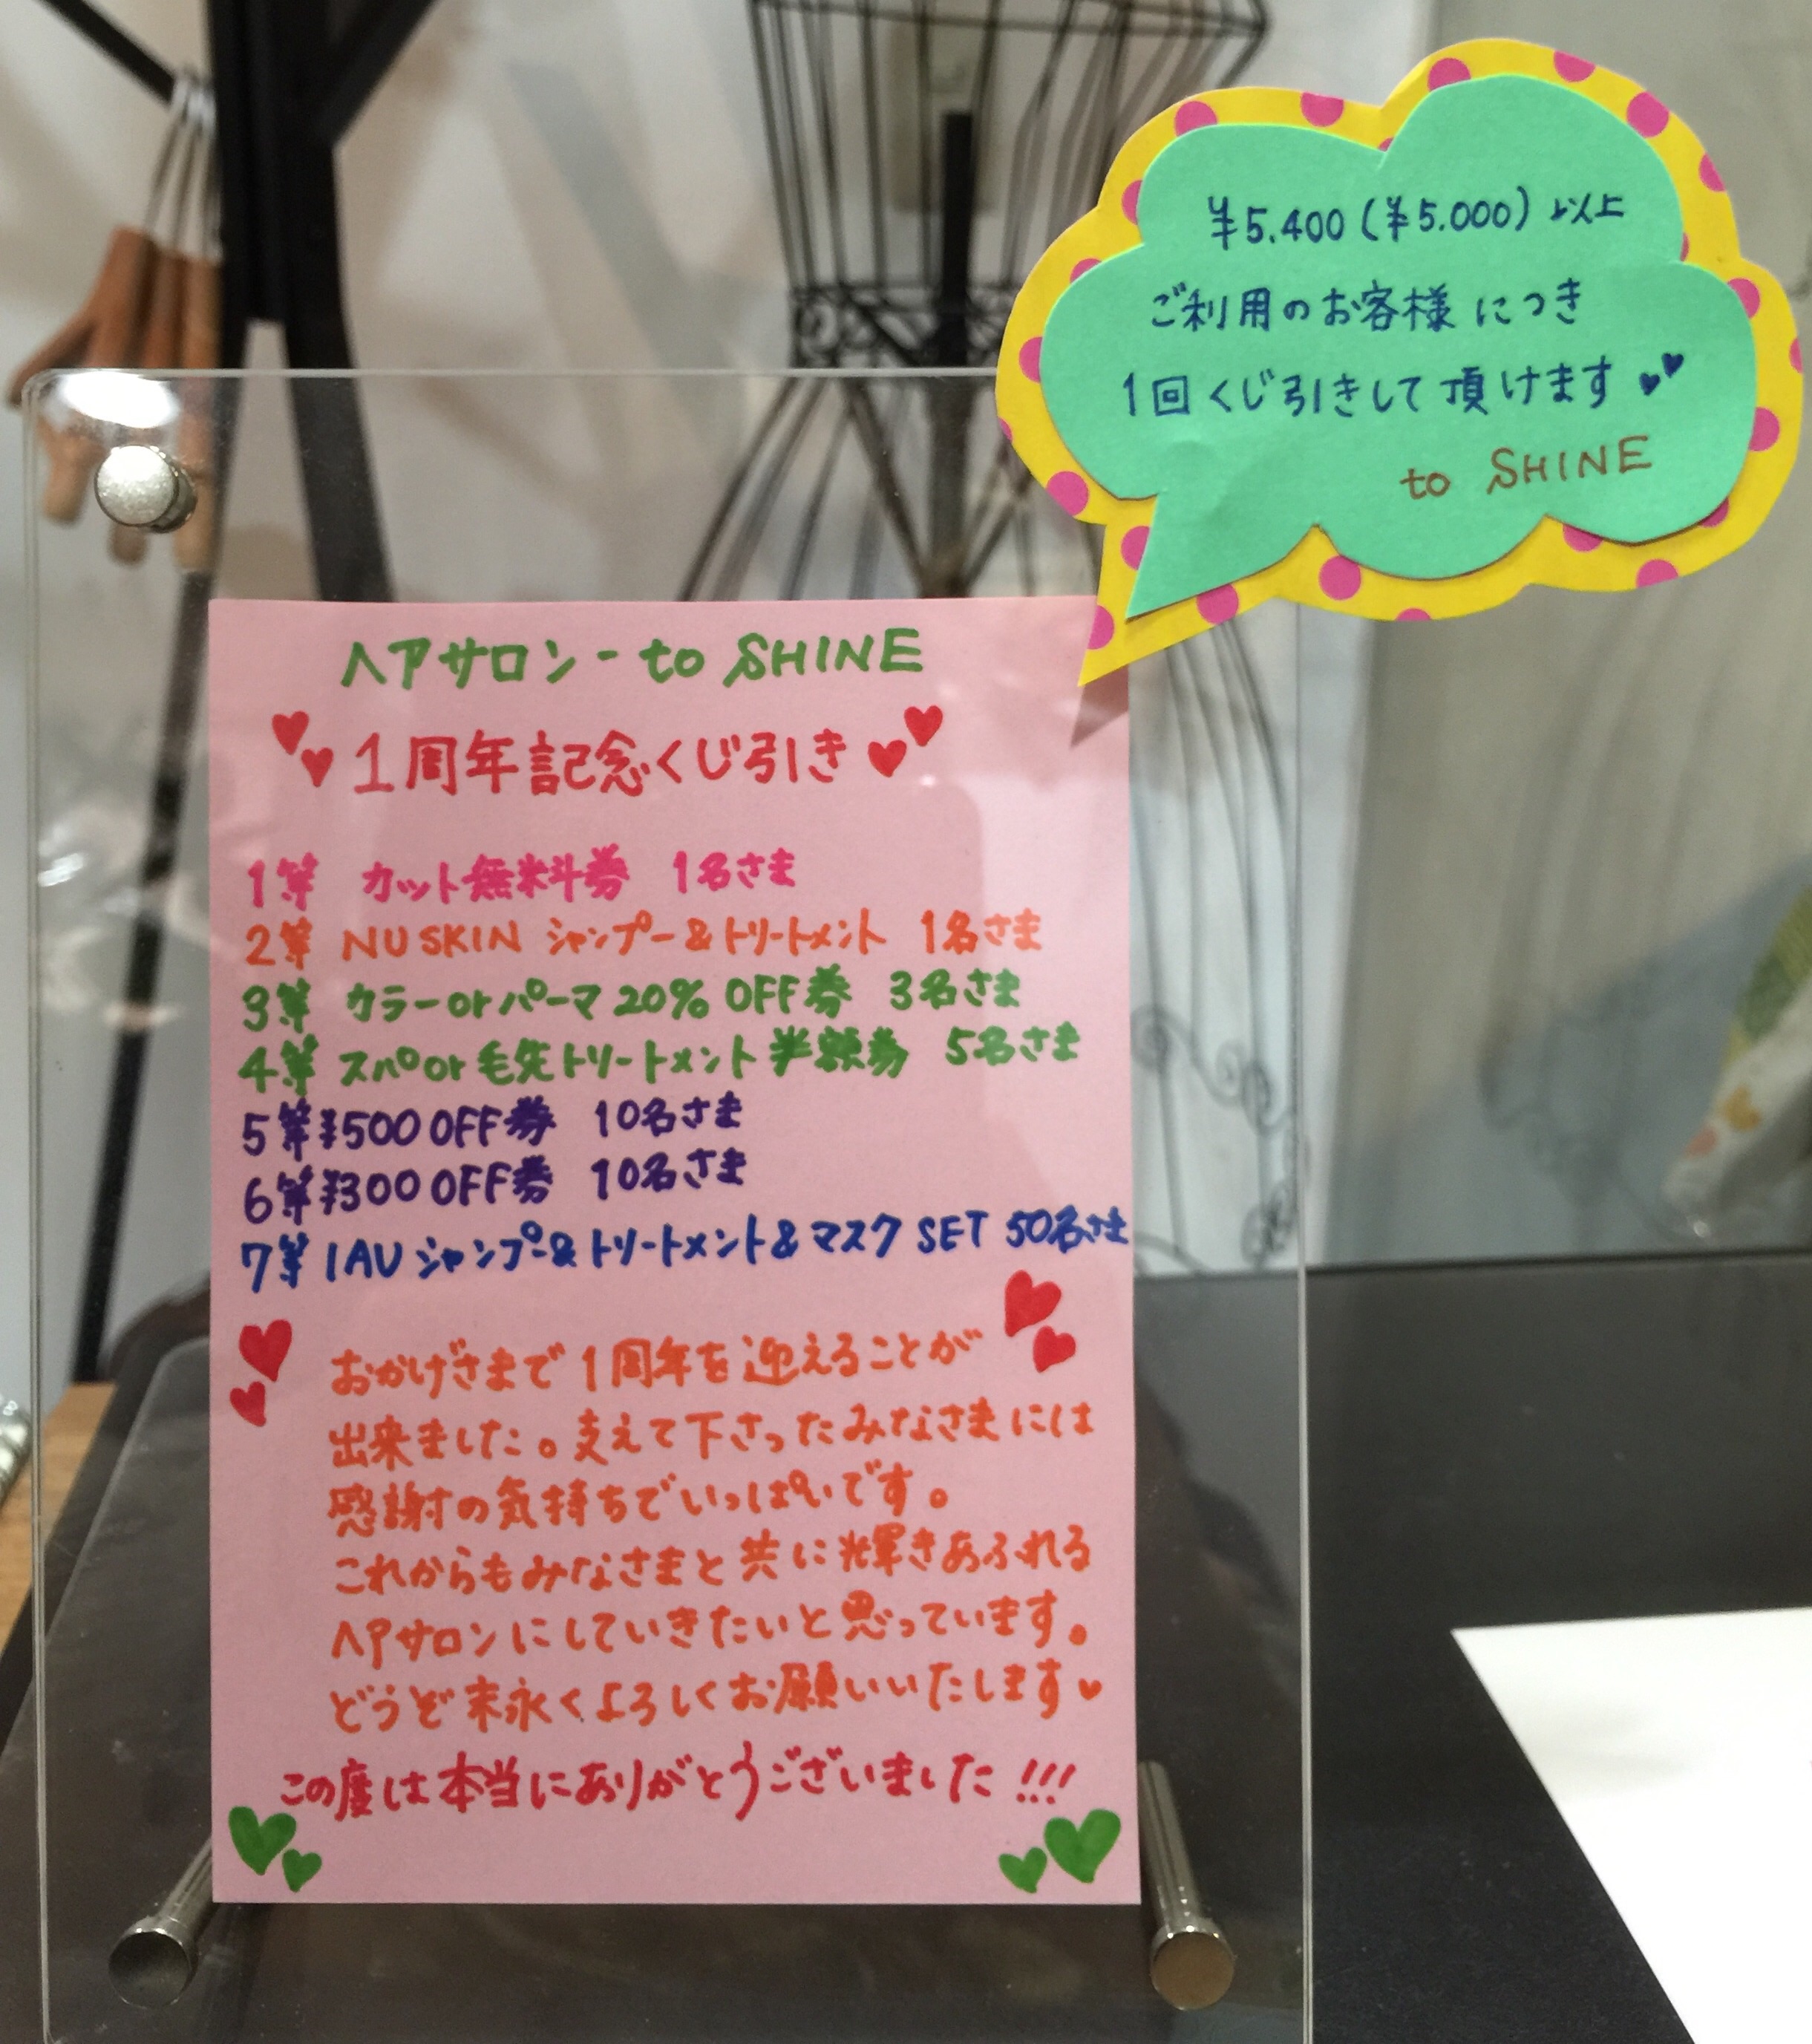 ¥5.400(¥5.000)以上
ご利用のお客様につき
1回くじ引きして頂けます
to SHINE
ヘアサロン-to SHINE
1周年記念くじ引き
1等 カット無料券 1名さま
2等 NUSKIN シャンプー&トリートメント 1名さま
3等 カラーorパーマ20% OFF券 3名さま
4等 スパor毛先トリートメント半額券 5名さま
5等¥500 OFF券 10名さま
6等¥300 OFF券 10名さま
7等 IAU シャンプー&トリートメント&マスク SET 50名さま
おかげさまで1周年を迎えることが
出来ました。支えて下さったみなさまには
感謝の気持ちでいっぱいです。
これからもみなさまと共に輝きあふれる
ヘアサロンにしていきたいと思っています。
どうぞ末永くよろしくお願いいたします
この度は本当にありがとうございました!!!